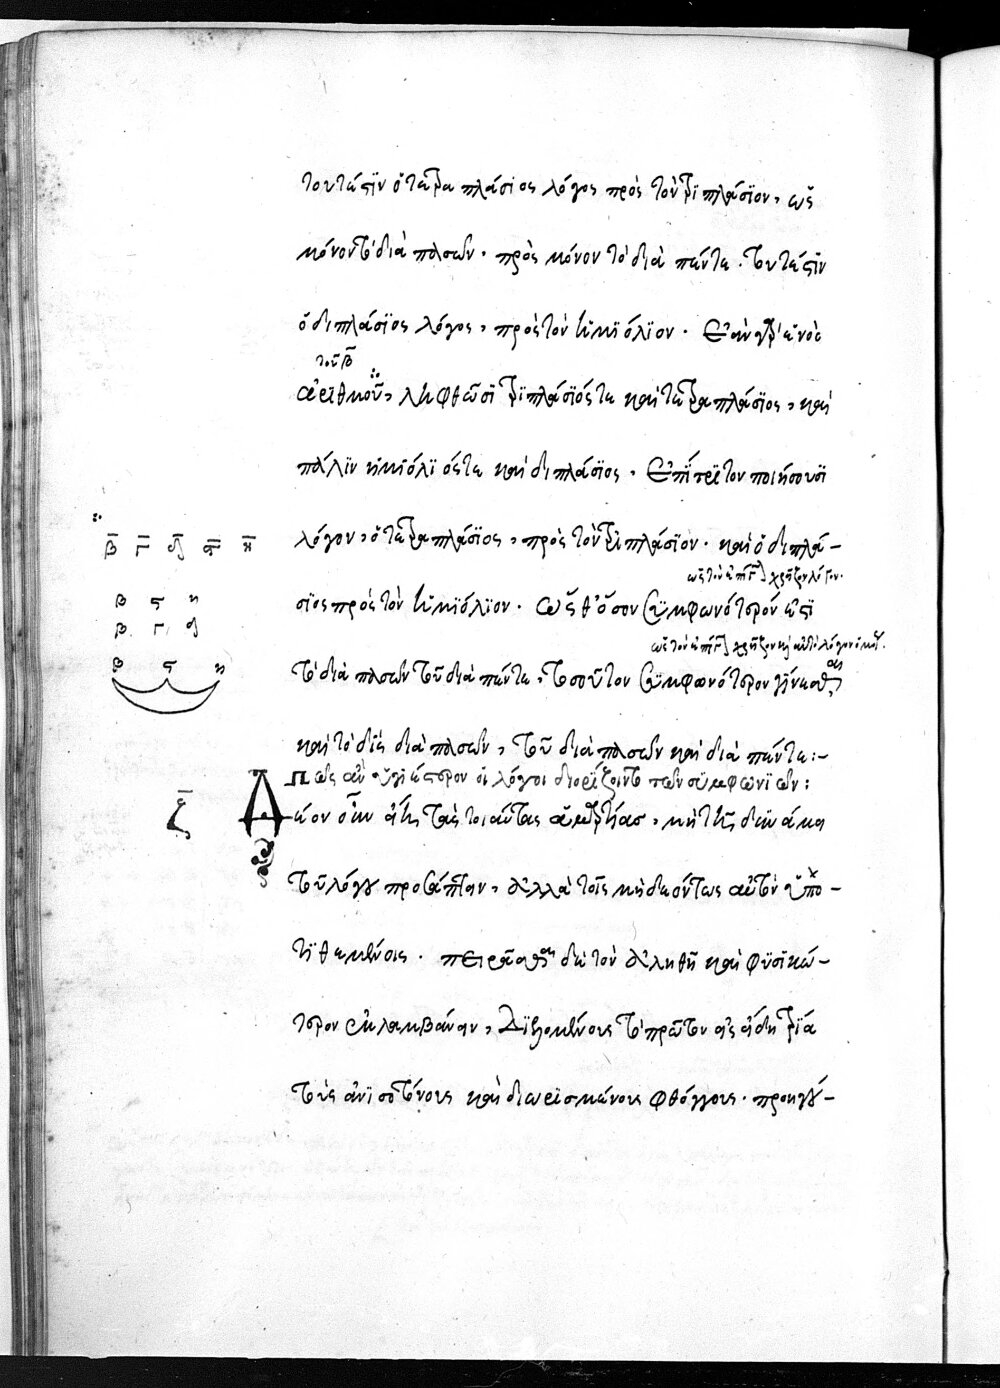 τουτέστϊν ὁ τετραπλάσιος λόγος πρὸς τὸν τρϊπλάσϊον, ὡς
μόνον τὸ διὰ πασῶν· πρὸς μόνον τὸ διὰ πέντε. τουτέστϊν
ὁ διπλάσϊος λόγος, πρὸς τὸν ἡμϊόλϊον· ἐὰν γὰρ ἑνὸς
τοῦ β̅
ἀρϊθμοῦ, ληφθῶσϊ τρϊπλάσϊός τε καὶ τετραπλάσϊος, καὶ
πάλϊν ἡμϊόλϊός τε καὶ διπλάσϊος· ἐπίτρϊτον ποιήσουσϊ
β̅ γ̅ δ̅ ϛ̅ η̅
λόγον, ὁ τετραπλάσϊος, πρὸς τὸν τρϊπλάσϊον· καὶ ὁ διπλά-
β ϛ η
σϊος πρὸς τὸν ἡμϊόλϊον. ὥσθ' ὅσον συμφωνότερόν ἐστϊ
β γ δ
β ϛ η
τὸ διὰ πασῶν τοῦ διὰ πέντε, τοσοῦτον συμφωνότερον γίνεσθαι
καὶ τὸ δὶς διὰ πασῶν, τοῦ διὰ πασῶν καὶ διὰ πέντε:-
Πῶς ἂν ὑγιέστερον οἱ λόγοι διορίζοιντο τῶν συμφωνϊῶν:
ζ̅
Δέον οὖν τὰς τοιαύτας ἁμαρτίας, μὴ τῇ δυνάμει
τοῦ λόγου προσάπτειν, ἀλλὰ τοῖς μὴ δεόντως αὐτὸν ὑπο-
τϊθεμένοις· πειρᾶσθαι δὲ τὸν ἀληθῆ καὶ φϋσϊκώ-
τερον ἐκλαμβάνειν, διελομένους τὸ πρῶτον εἰς εἴδη τρϊα
τοὺς ἀνϊσοτόνους καὶ διωρϊσμένους φθόγγους· προηγου-